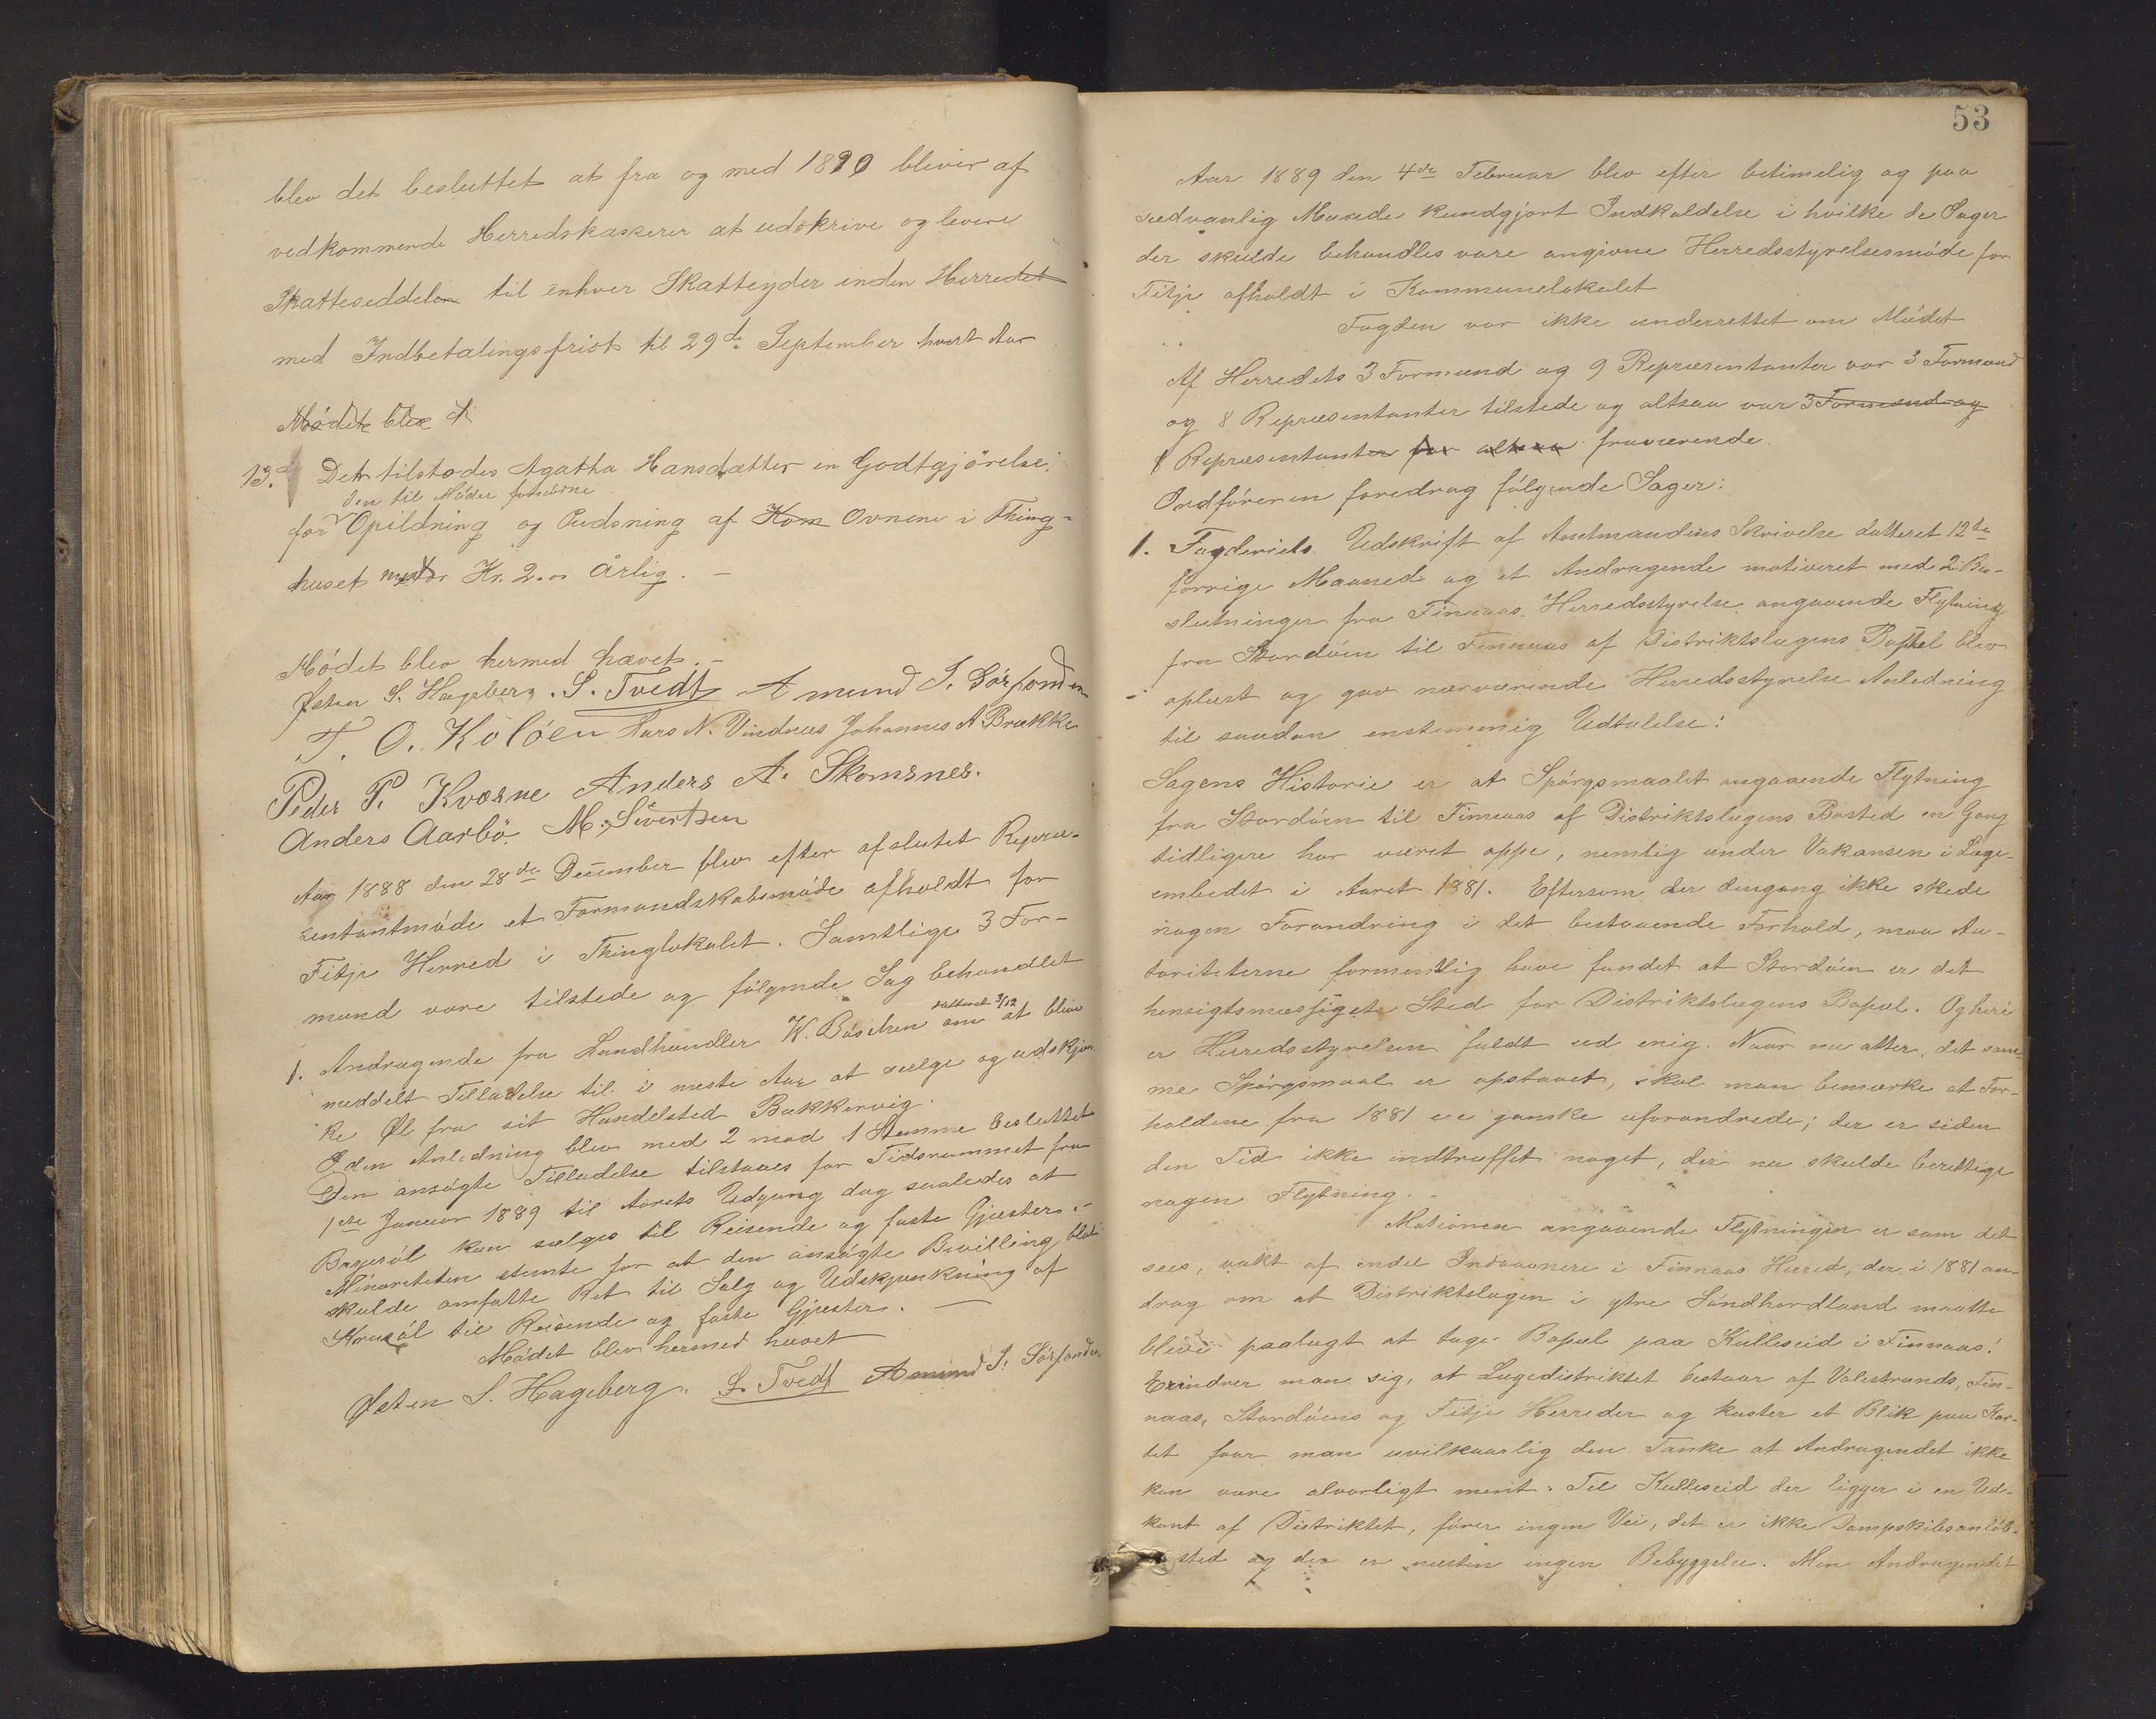 blev det besluttet at fra og med 1890 bliver af
vedkommende Herredskasserer at udskrive og levere
Skatteseddelen til enhver Skatteyder inden Herredet
med Indbetalingsfrist til 29de September hvert Aar
Mödet blev
13. Det tilstodes Agatha Hansdatter en Godtgjörelse
den til Möder fornödne
for Opildning og Pudsning af Kom Ovnene i Thing-
huset med Kr. 2.00 årlig. -
Mödet blev hermed hævet. -
Østen S. Hageberg. S. Tvedt Amund J. Sörfonden
T. O. Kolöen Lars N. Vindnes Johannes A Brække
Peder P. Kværne Anders A. Skomsnes.
Anders Aarbö. M. Sivertsen
Aar 1888 den 28de December blev efter afsluttet Repræ-
sentantmöde et Formandskabsmöde afholdt for
Fitje Herred i Thinglokalet. Samtlige 3 For-
mænd vare tilstede og fölgende Sag behandlet
datteret 3/12
1. Andragende fra Landhandler W. Böschen om at blive
meddelt Tilladelse til i neste Aar at sælge og udskjæn-
ke Øl fra sit Handelsted Bakkervig.
I den Anledning blev med 2 mod 1 Stemme besluttet
Den ansögte Tilladelse tilstaaes for Tidsrummet fra
1ste Januar 1889 til Aarets Udgang dog saaledes at
Bayeröl kun sælges til Reisende og faste Gjæster. -
Minoriteten stemte for at den ansögte Bevilling blot
skulde omfatte Ret til Salg og Udskjænkning af
til Reisende og faste Gjæster. -
Mödet blev hermed hævet
Østen S. Hageberg. S. Tvedt Amund J. Sörfonden
53
Aar 1889 den 4de Februar blev efter betimelig og paa
sædvanlig Maade kundgjort Indkaldelse i hvilke de Sager
der skulde behandles vare angivne Herredsstyrelsesmöde for
Fitje afholdt i Kommunelokalet
Fogden var ikke underrettet om Mödet
Af Herredets 3 Formænd og 9 Repræsentanter var 3 Formænd
og 8 Repræsentanter tilstede og altsaa var 3 Formænd og
1 Repræsentanter for altsaa fraværende.
Ordföreren foredrog fölgende Sager:
1. Fogderiets Udskrift af Amtmandens Skrivelse datteret 12te
forrige Maaned og et Andragende motiveret med 2 Be-
slutninger fra Finnaas Herredsstyrelse angaaende Flytning
fra Stordöen til Finnaas af Distriktslægens Bopæl blev
oplæst og gav nærværende Herredsstyrelse Anledning
til saadan enstemmig Udtalelse:
Sagens Historie er at Spörgsmaalet angaaende Flytning
fra Stordöen til Finnaas af Distriktslægens Bosted en Gang
tidligere har været oppe, nemlig under Vakansen i Læge-
embedet i Aaret 1881. Eftersom der dengang ikke skede
nogen Forandring i det bestaaende Forhold, maa Au-
toriteterne formentlig have fundet at Stordöen er det
hensigtsmæssigste Sted for Distriktslægens Bopæl. Og heri
er Herredsstyrelsen fuldt ud enig. Naar nu atter det sam-
me Spörgsmaal er opstaaet, skal man bemærke at For-
holdene fra 1881 ere ganske uforandrede; der er siden
den Tid ikke indtruffet noget, der nu skulde berettige
nogen Flytning.
Motionen angaaende Flytningen er som det
sees, vakt af endel Indvaanere i Finnaas Herred, der i 1881 an-
drog om at Distriktslægen i ytre Söndhordland maatte
blive paalagt at tage Bopæl paa Kulleseid i Finnaas!
Erindrer man sig, at Lægedistriktet bestaar af Valestrands, Fin-
naas, Stordöens og Fitje Herreder og kaster et Blik paa Kar-
tet faar man uvilkaarlig den Tanke at Andragendet ikke
kan være alvorligt ment. Til Kulleseid der ligger i en Ud-
kant af Distriktet, förer ingen Vei, det er ikke Dampskibsanlöb-
sted og der er næsten ingen Bebyggelse. Men Andragendet